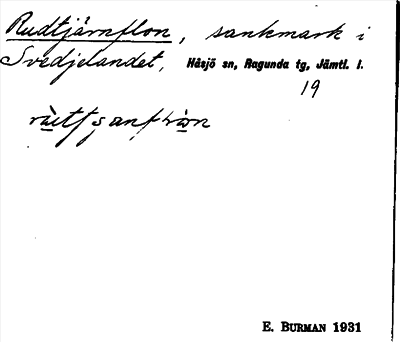 Rudtjärnflon, sankmark i
Svedjelandet, Håsjö sn, Ragunda tg, Jämtl. l.
19
E. BURMAN 1931